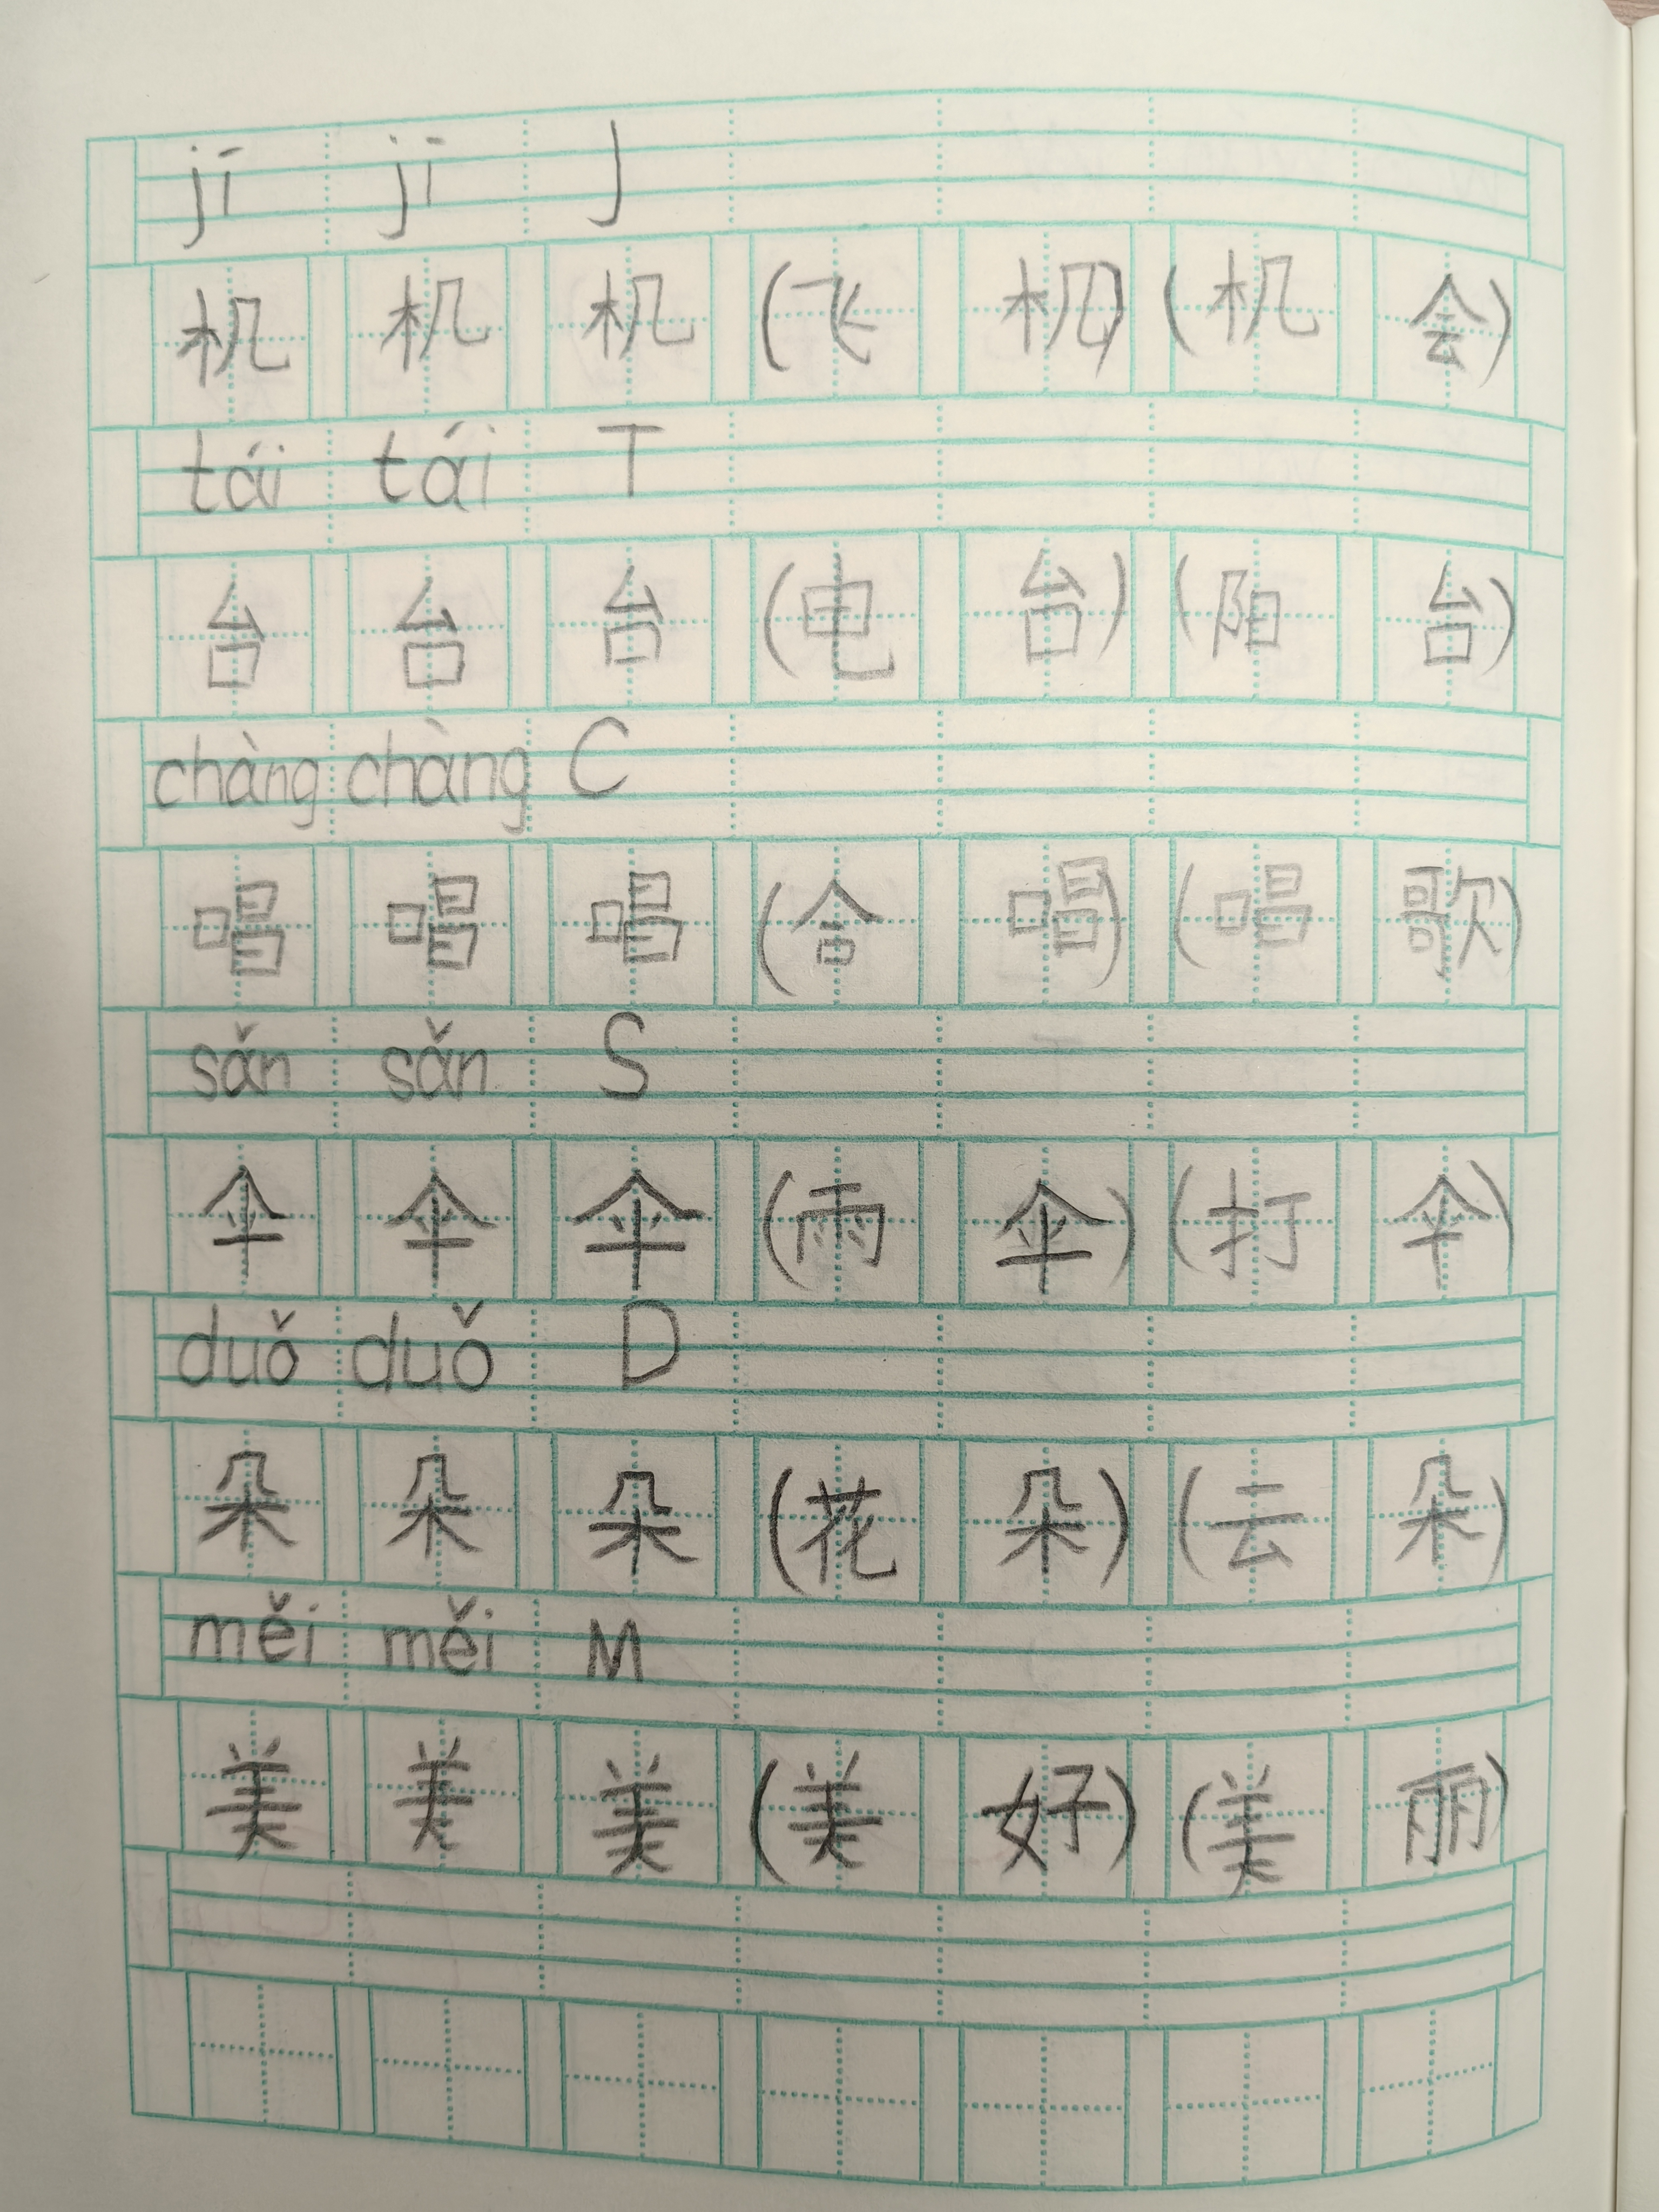 jī jī J
机 机 机 (飞 机) (机 会)
tái tái T
台 台 台 (电 台) (阳 台)
chàng chàng C
唱 唱 唱 (合 唱) (唱 歌)
sǎn sǎn S
伞 伞 伞 (雨 伞) (打 伞)
duǒ duǒ D
朵 朵 朵 (花 朵) (云 朵)
měi měi M
美 美 美 (美 好) (美 丽)